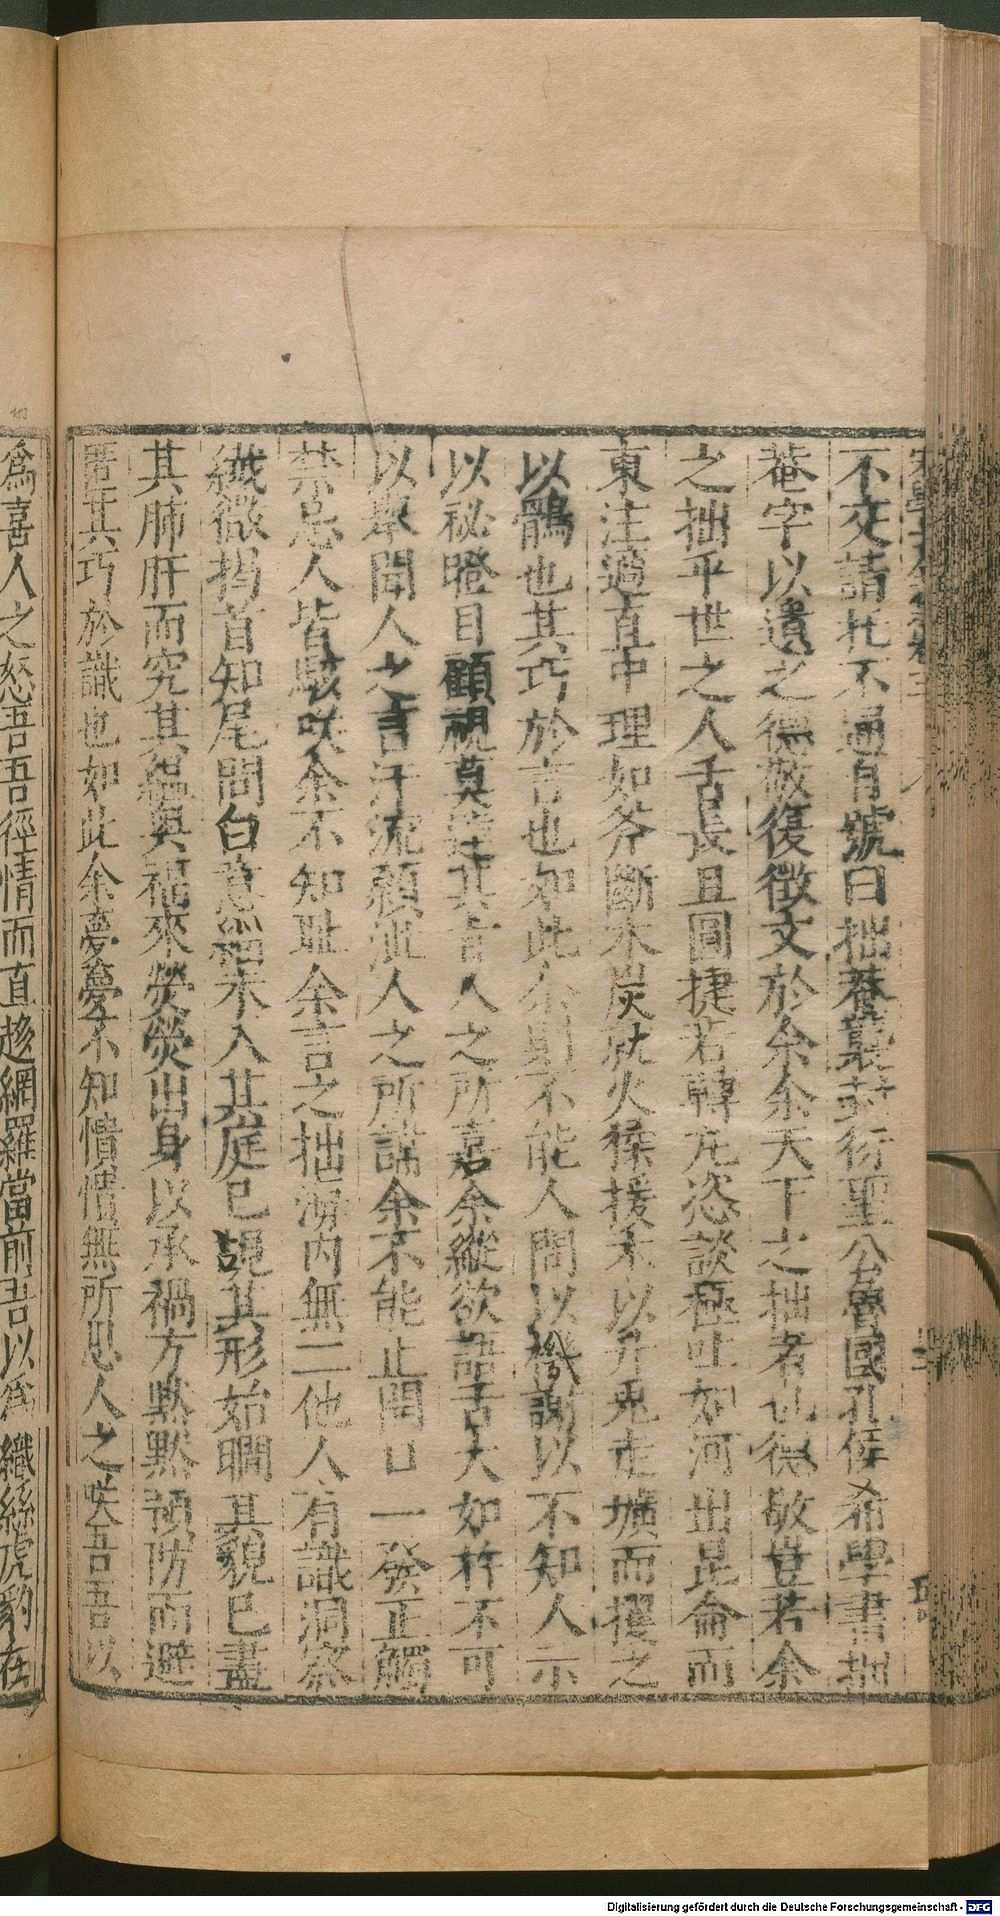 不交請托不通自號曰拙菴襲封衍聖公魯國孔侯希學書拙
菴字以遺之德敬復徵文於余余天下之拙者也德敬豈若余
之拙乎世之人舌長且圓捷若轉丸恣談極吐如河出昆侖而
東注適直中理如斧斷木炭就火猱援木以升兎走壙而攫之
以鶻也其巧於言也如此余則不能人問以機謝以不知人示
以秘瞪目顧視莫達其言人之所嘉余縱欲語舌大如杵不可
以舉聞人之言汗流顏泚人之所諱余不能止開口一發正觸
禁忌人皆駭咲余不知耻余言之拙海內無二他人有識洞察
纎微揭首知尾問白意緇未入其庭已覩其形始瞷其貌已盡
其肺肝而究其緼奥福來熒熒出身以承禍方默默預防而避
其巧於識也如此余夢夢不知憒憒無所思人之咲吾吾以
爲喜人之怒吾吾徑情而直趍網羅當前吾以爲織絲虎豹在
Digitalisierung gefördert durch die Deutsche Forschungsgemeinschaft - DFG